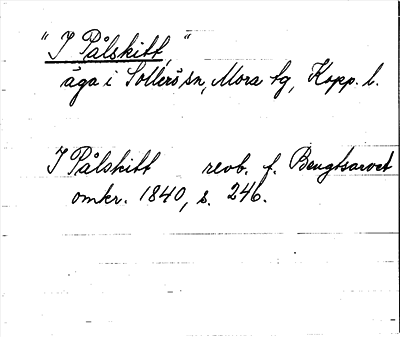 "I Pålskitt,"
äga i Sollerö sn, Mora tg, Kopp. l.
I Pålskitt revb. f. Bengtsarvet
omkr. 1840, s. 246.